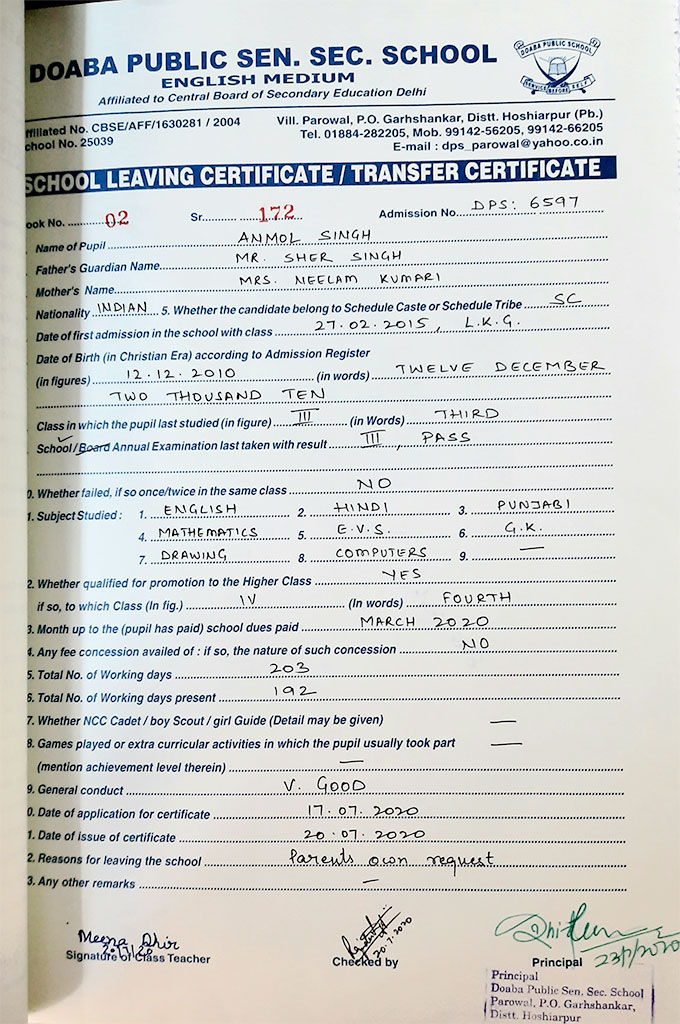 DOABA PUBLIC SEN. SEC. SCHOOL
DOABA PUBLIC SCHOOL
SERVICE BEFORE SELF
ENGLISH MEDIUM
Affiliated to Central Board of Secondary Education Delhi
ffiliated No. CBSE/AFF/1630281 / 2004
Vill. Parowal, P.O. Garhshankar, Distt. Hoshiarpur (Pb.)
chool No. 25039
Tel. 01884-282205, Mob. 99142-56205, 99142-66205
E-mail : dps_parowal@yahoo.co.in
SCHOOL LEAVING CERTIFICATE / TRANSFER CERTIFICATE
ook No. 02 Sr. 172 Admission No. DPS: 6597
Name of Pupil ANMOL SINGH
Father's Guardian Name MR. SHER SINGH
Mother's Name MRS. NEELAM KUMARI
Nationality INDIAN 5. Whether the candidate belong to Schedule Caste or Schedule Tribe SC
Date of first admission in the school with class 27.02.2015, L.K.G.
Date of Birth (in Christian Era) according to Admission Register
(in figures) 12.12.2010 (in words) TWELVE DECEMBER
TWO THOUSAND TEN
Class in which the pupil last studied (in figure) III (in Words) THIRD
School / Board Annual Examination last taken with result III, PASS
0. Whether failed, if so once/twice in the same class NO
1. Subject Studied : 1. ENGLISH 2. HINDI 3. PUNJABI
4. MATHEMATICS 5. E.V.S. 6. G.K.
7. DRAWING 8. COMPUTERS 9. —
2. Whether qualified for promotion to the Higher Class YES
if so, to which Class (In fig.) IV (In words) FOURTH
3. Month up to the (pupil has paid) school dues paid MARCH 2020
4. Any fee concession availed of : if so, the nature of such concession NO
5. Total No. of Working days 203
6. Total No. of Working days present 192
7. Whether NCC Cadet / boy Scout / girl Guide (Detail may be given) —
8. Games played or extra curricular activities in which the pupil usually took part —
(mention achievement level therein) —
9. General conduct V. GOOD
0. Date of application for certificate 17.07.2020
1. Date of issue of certificate 20.07.2020
2. Reasons for leaving the school Parents own request
3. Any other remarks —
Meena Dhir
20.7.2020
23/7/2020
Signature of Class Teacher Checked by Principal
Principal
Doaba Public Sen. Sec. School
Parowal, P.O. Garhshankar,
Distt. Hoshiarpur